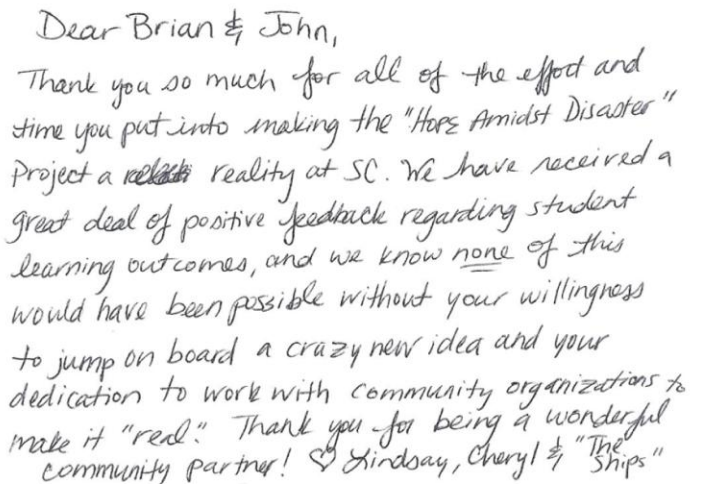 Dear Brian & John,
Thank you so much for all of the effort and
time you put into making the "Hope Amidst Disaster"
Project a reality at SC. We have received a
great deal of positive feedback regarding student
learning outcomes, and we know none of this
would have been possible without your willingness
to jump on board a crazy new idea and your
dedication to work with community organizations to
make it "real". Thank you for being a wonderful
community partner! ♡ Lindsay, Cheryl & "The Ships"